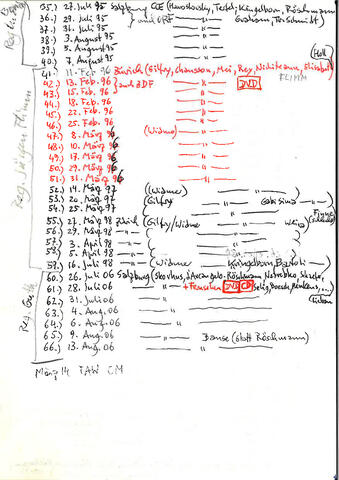 35.) 27. Juli 95 Salzburg COE (Hvorostovsky, Terfel, Ringelborn, Röschmann
36.) 29. Juli 95 } und ORF Graham, Tr. Schmidt)
37.) 31. Juli 95 — " —
38.) 3. August 95 — " —
39.) 5. August 95 — " —
40.) 7. August 95 — " — (Holl)
41.) 11. Feb. 96 Zürich (Gilfry, Chausson, Mei, Rey, Nikiteanu,
42.) 13. Feb. 96 } und ZDF — " — DVD FLIMM
43.) 15. Feb. 96 — " —
44.) 18. Feb. 96 — " —
45.) 22. Feb. 96 — " —
46.) 25. Feb. 96 — " —
47.) 8. März 96 (Widmer) — " —
48.) 10. März 96 — " —
49.) 17. März 96 — " —
50.) 29. März 96 — " —
51.) 31. März 96 — " —
52.) 14. März 97 (Widmer) — " —
53.) 20. März 97 (Gilfry — " —
54.) 25. März 97 — " —
55.) 27. März 98 Zürich (Gilfry/Widmer — " —
56.) 29. März 98 — " —
57.) 3. April 98 — " —
58.) 5. April 98 — " —
59.) 16. Juli 98 — " — (Widmer Ringelborn, Bartoli — " —
60.) 26. Juli 06 Salzburg (Skovhus, d'Arcangelo, Röschmann, Netrebko, Schäfer,
61.) 28. Juli 06 — " — + Fernsehen DVD CD Selig, Boesch, McLaughlin, ...)
62.) 31. Juli 06 — " —
63.) 4. Aug. 06 — " —
64.) 6. Aug. 06 — " —
65.) 9. Aug. 06 — " — Banse (statt Röschmann)
66.) 13. Aug. 06 — " —
März 14 TAW CM
Reg. Jürgen Flimm
Reg. Guth